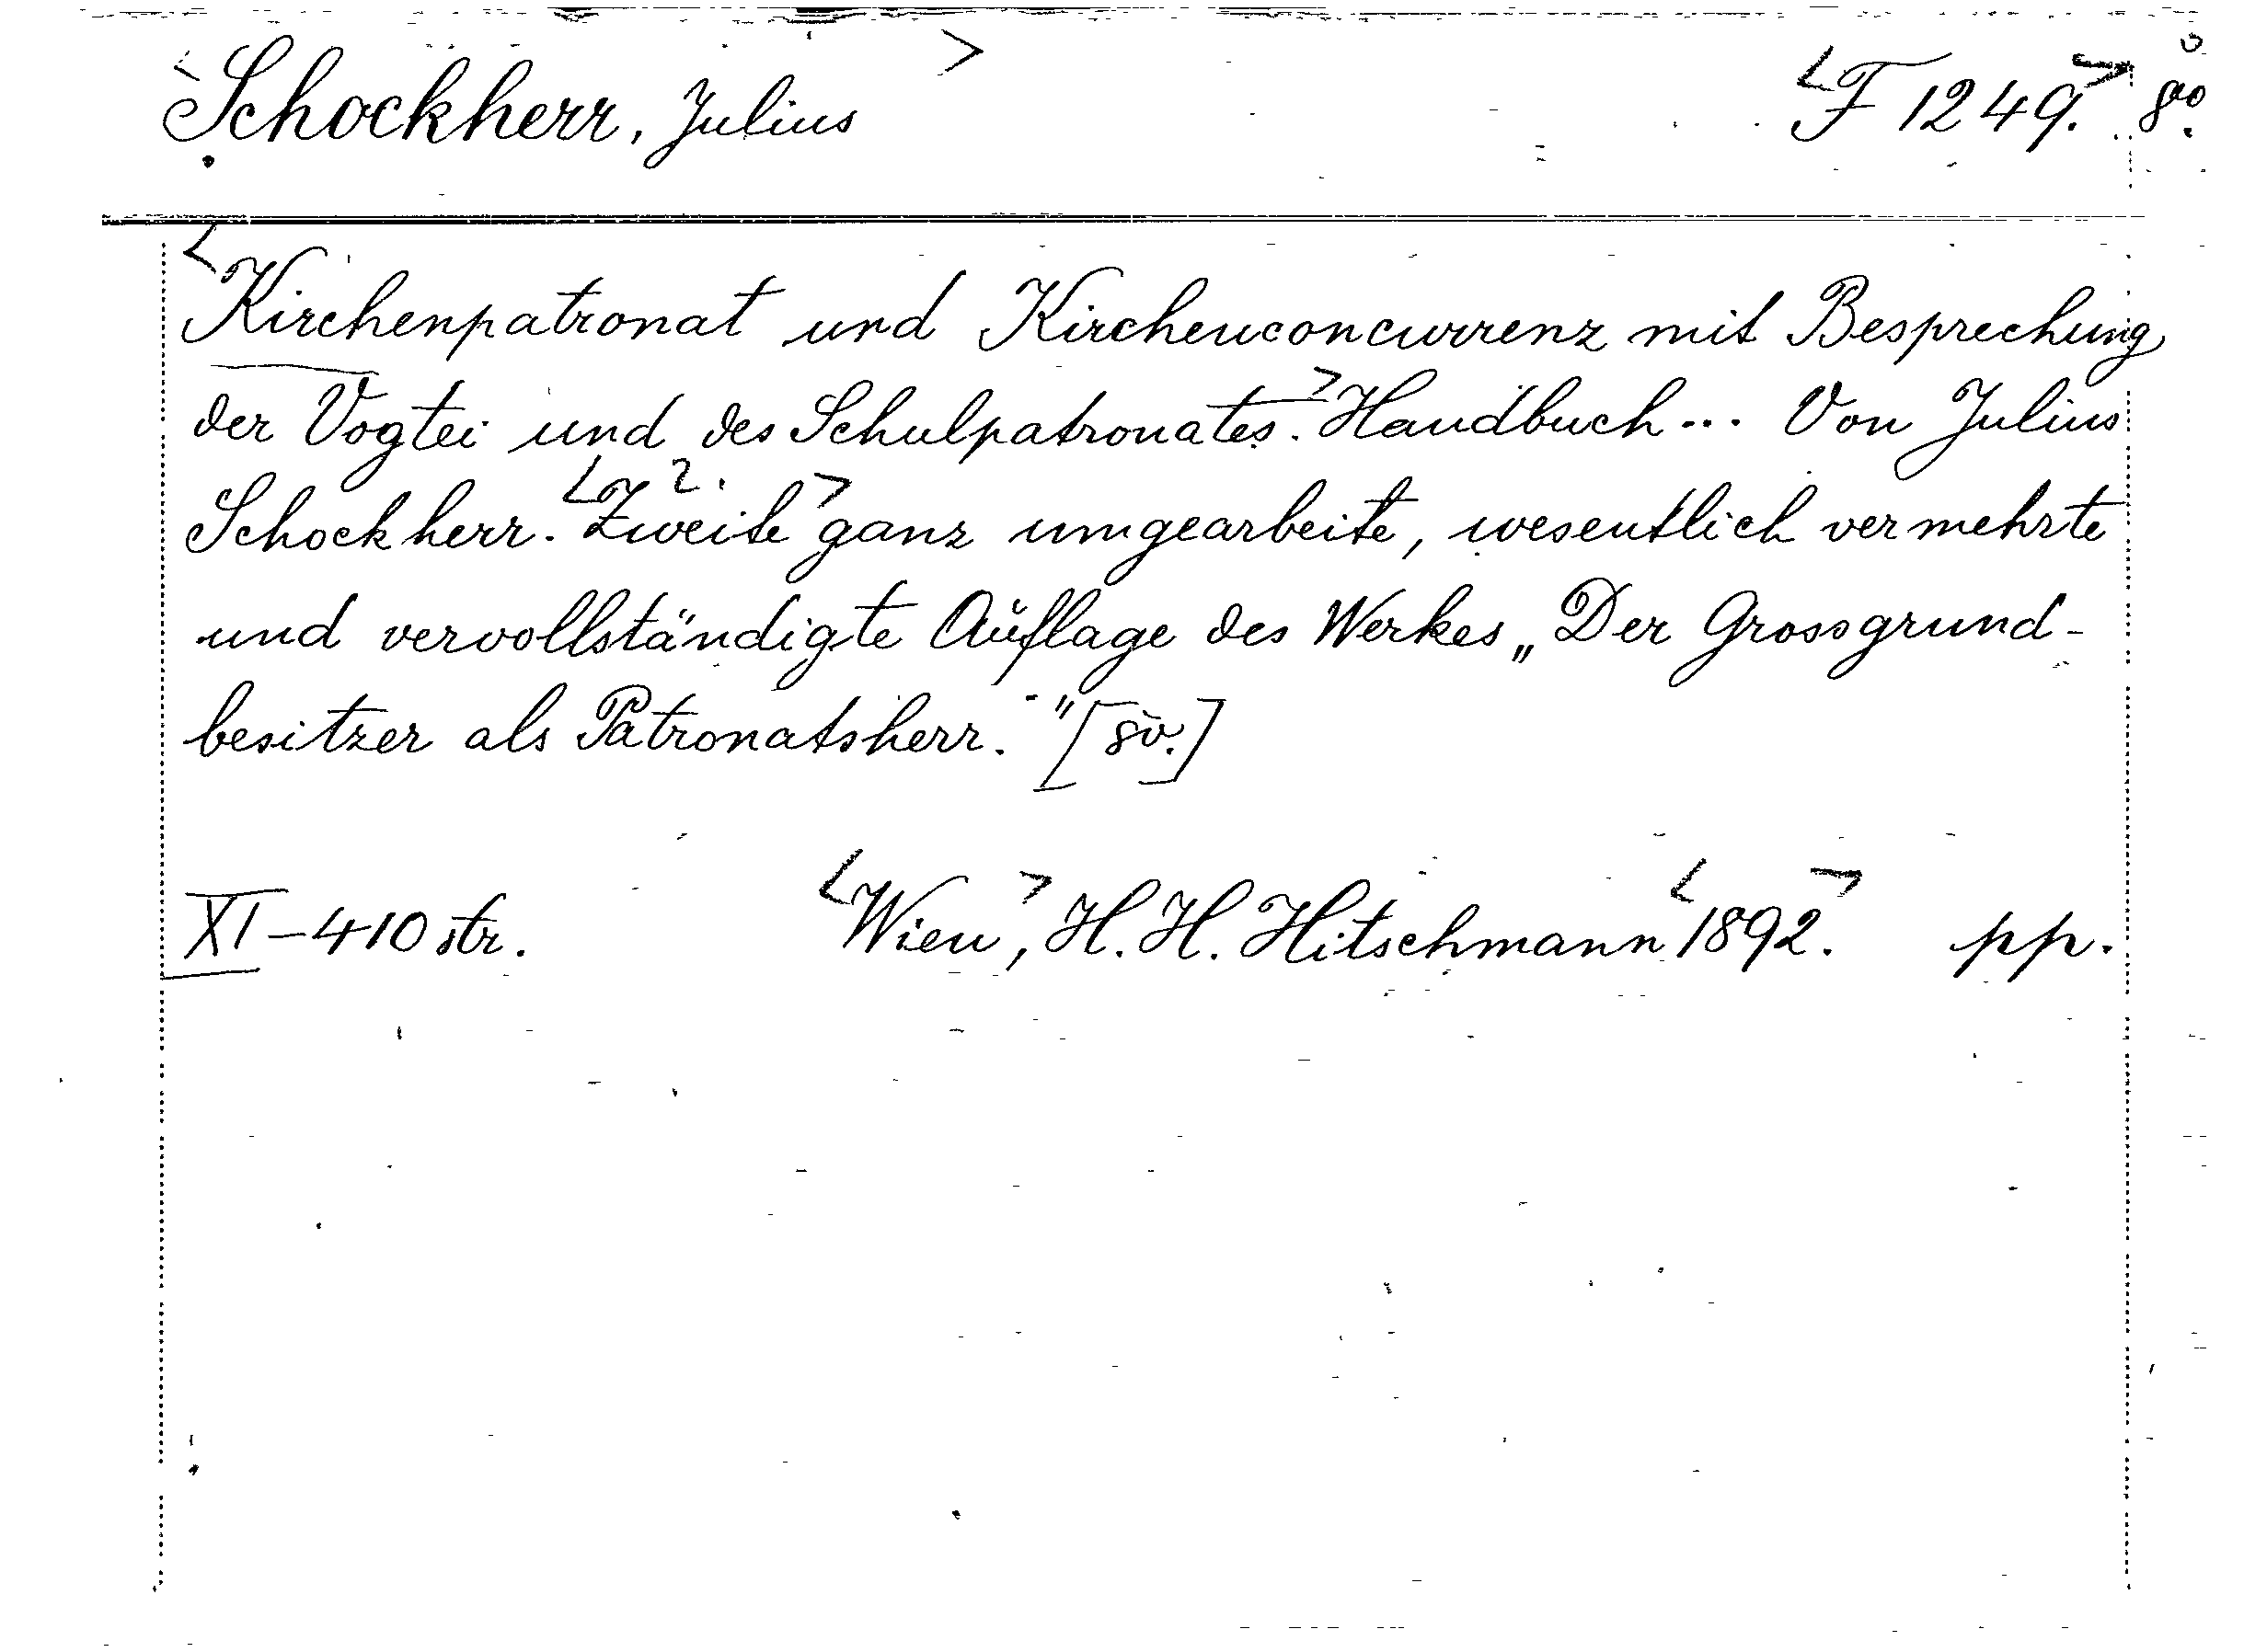 <Schockherr, Julius> <F 1249.> 8vo.
<Kirchenpatronat und Kirchenconcurrenz mit Besprechung
der Vogtei und des Schulpatronates.> Handbuch... Von Julius
Schockherr. <Zweite 2.> ganz umgearbeite, wesentlich vermehrte
und vervollständigte Auflage des Werkes „Der Grossgrund-
besitzer als Patronatsherr." [8v.]
XI-410 str. <Wien>, H. H. Hitschmann <1892>. pp.